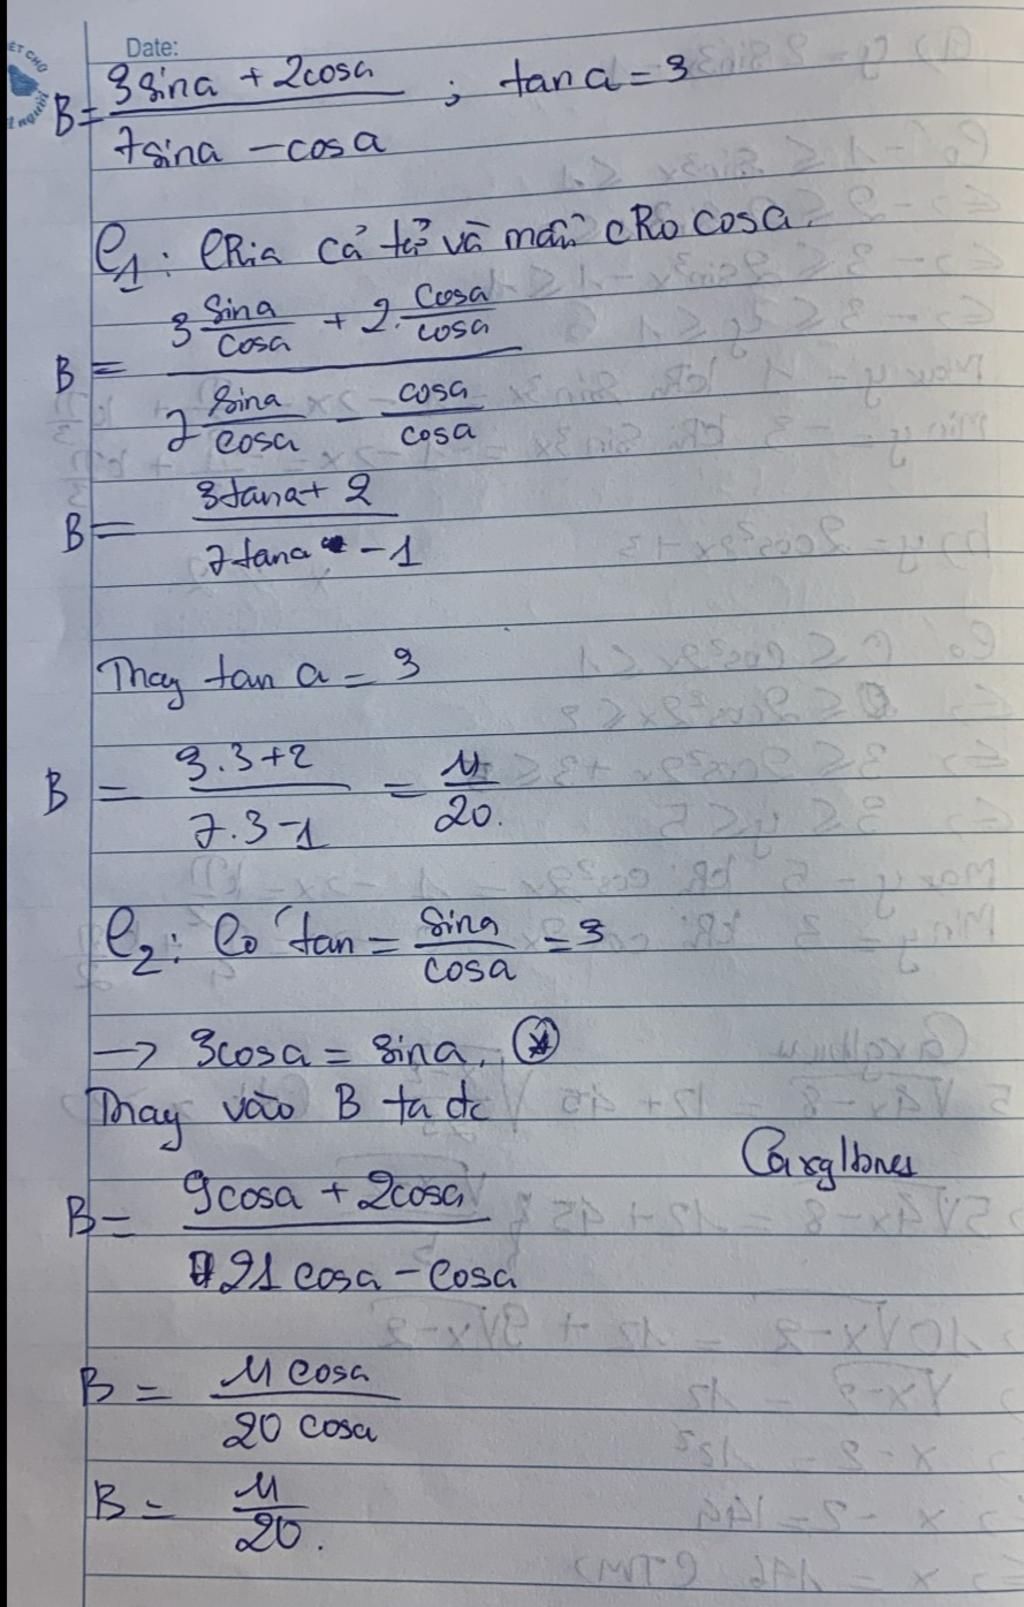 Date:
B = (3sina + 2cosa) / (7sina - cosa) ; tan a = 3
C1: Chia cả tử và mẫu cho cosa.
B = (3 sina/cosa + 2. cosa/cosa) / (7 sina/cosa - cosa/cosa)
B = (3tana + 2) / (7tana - 1)
Thay tan a = 3
B = (3.3+2) / (7.3-1) = 11/20.
C2: Có tan = sina/cosa = 3
→ 3cosa = sina. (*)
Thay vào B ta đc
Carglbnes
B = (9cosa + 2cosa) / (21cosa - cosa)
B = 11cosa / 20cosa
B = 11/20.